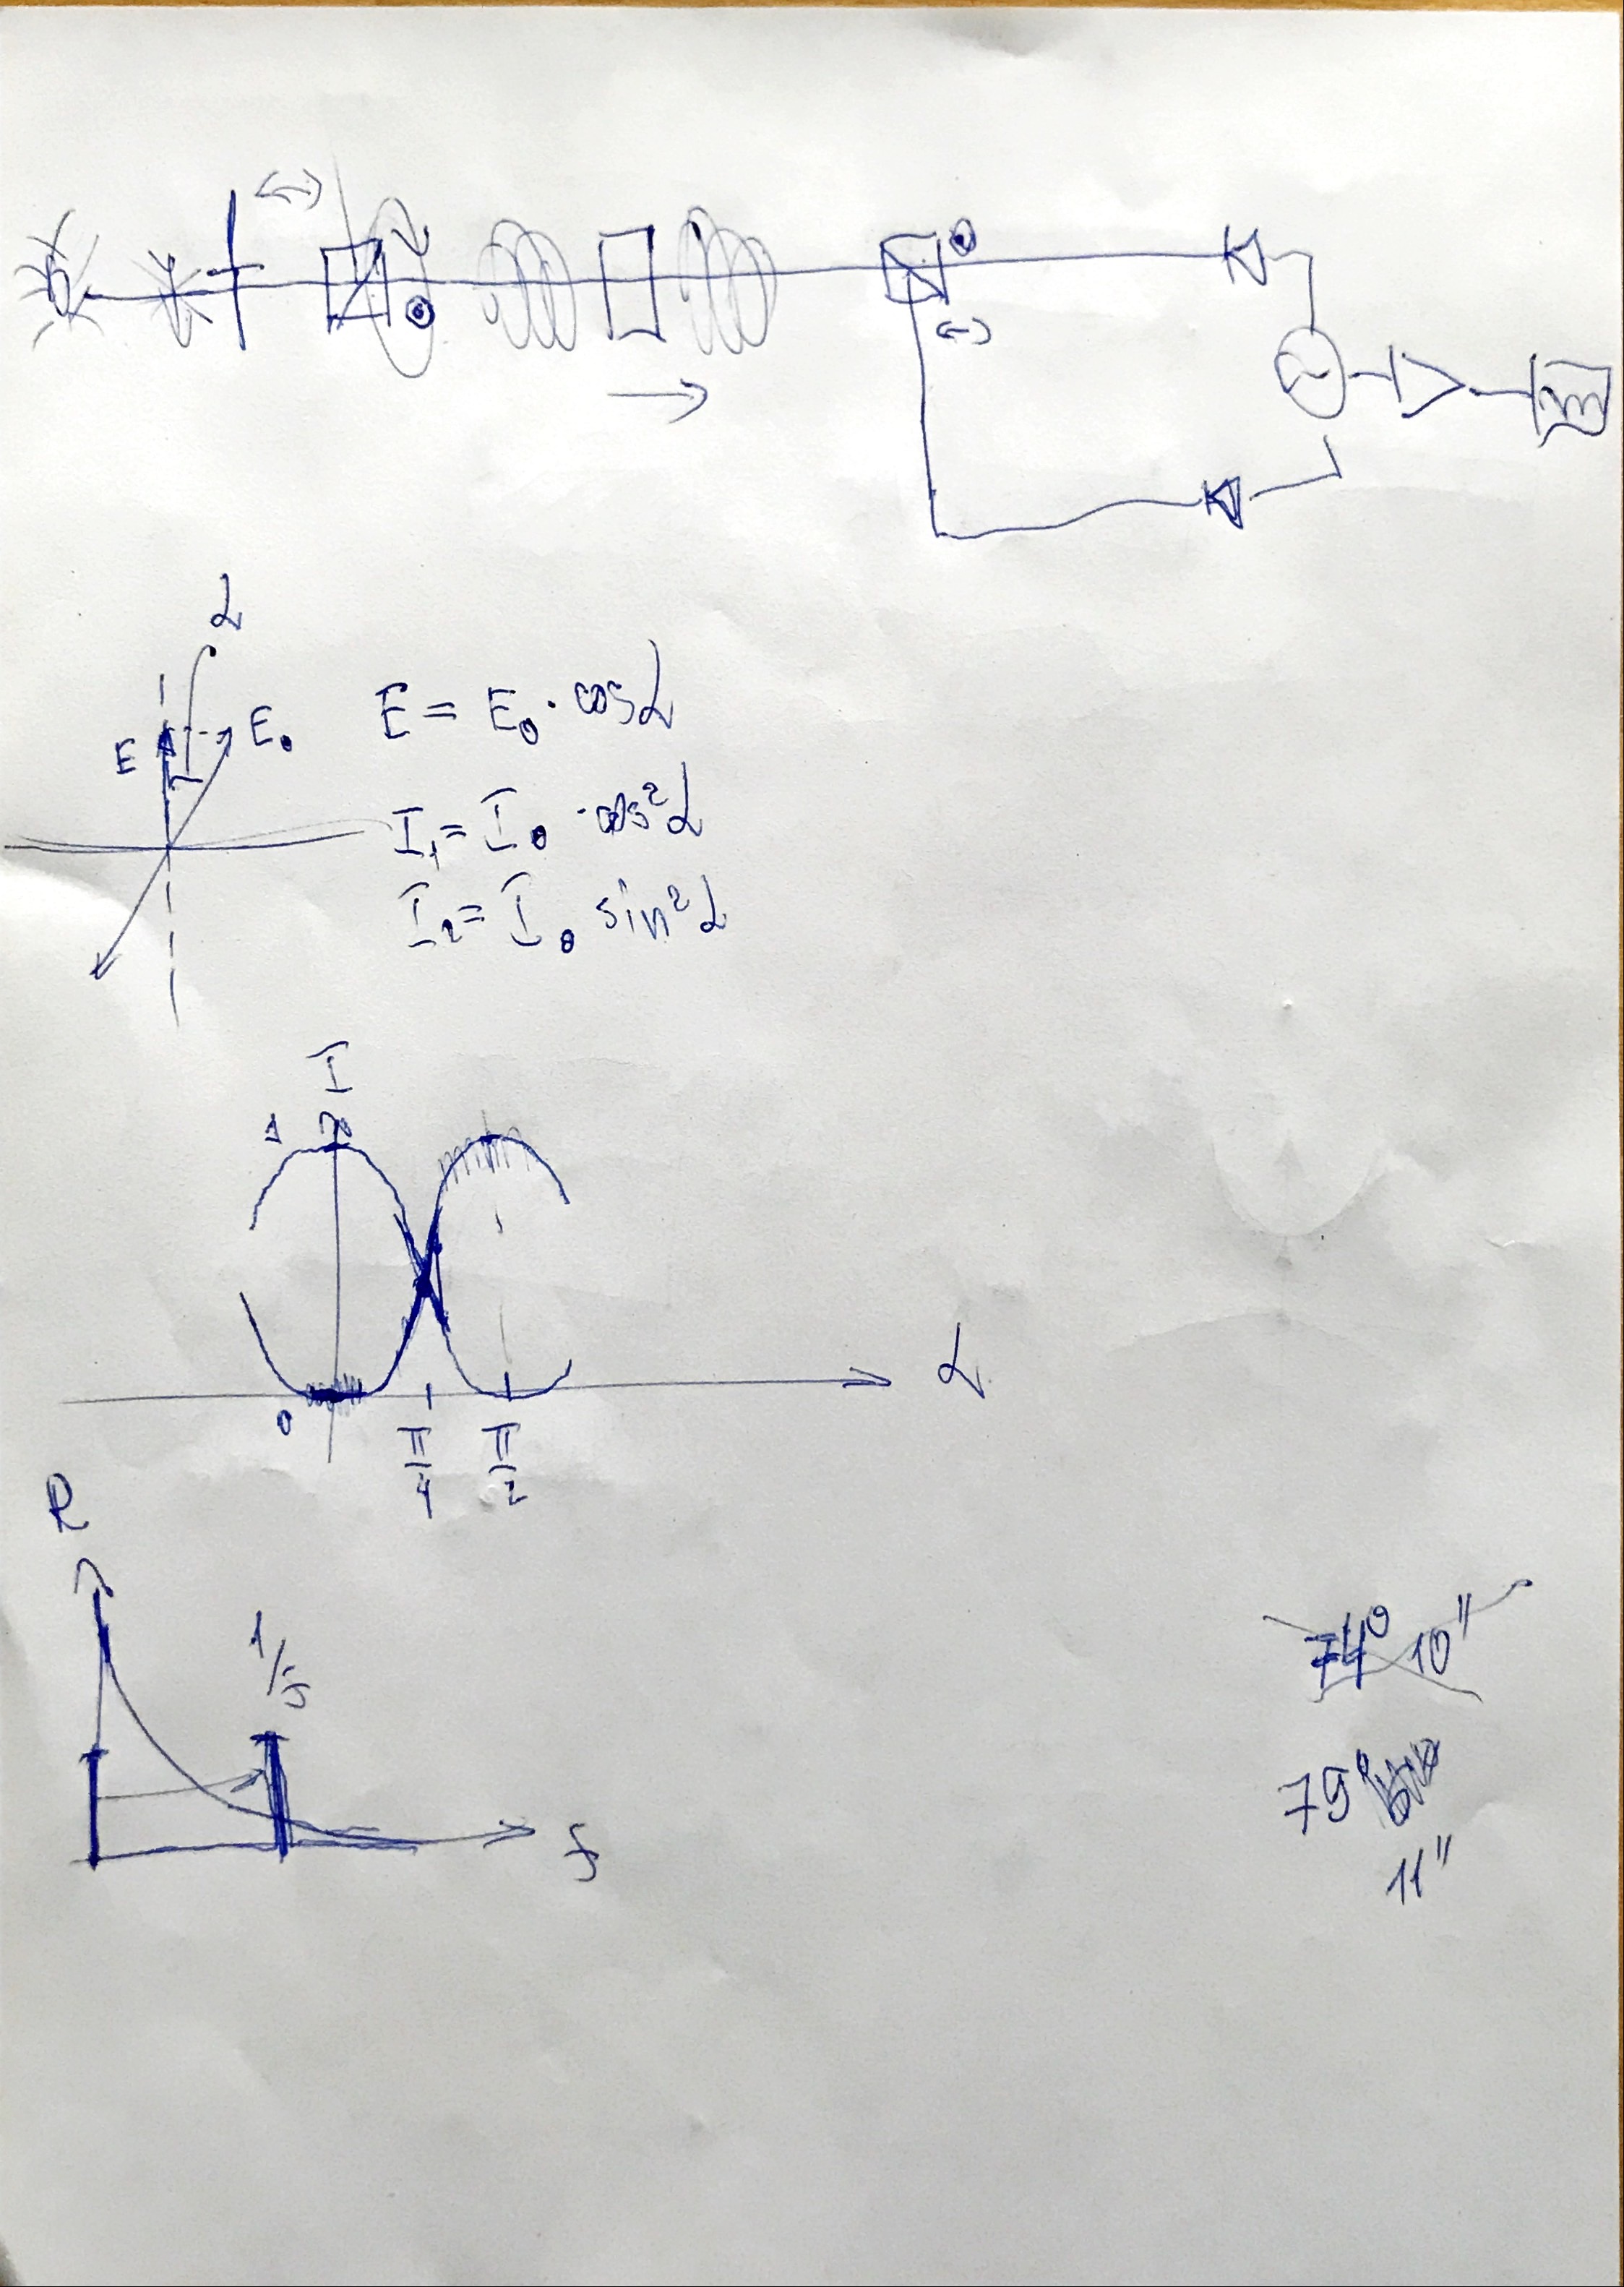 α
E
E₀
E = E₀ · cosα
I₁ = I₀ · cos²α
I₂ = I₀ sin²α
I
1
0
α
π/4
π/2
1/f
f
74° 10"
79°
11"